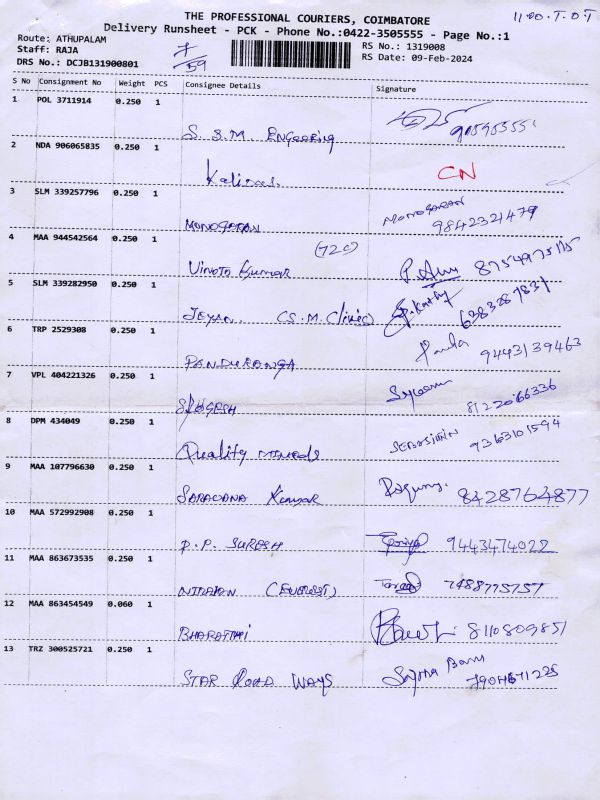 THE PROFESSIONAL COURIERS, COIMBATORE
11.00.T.O.T
Delivery Runsheet - PCK - Phone No.:0422-3505555 - Page No.:1
Route: ATHUPALAM
RS No.: 1319008
Staff: RAJA
7/59
RS Date: 09-Feb-2024
DRS No.: DCJB131900801
S No Consignment No Weight PCS Consignee Details Signature
1 POL 3711914 0.250 1
S.B.M. Engeering
2 NDA 906065835 0.250 1
Kalices. CN
3 SLM 339257796 0.250 1
MONOGARAN MONOGARAN 9842321479
4 MAA 944542564 0.250 1
Vinoth Kumar (720) 8754975115
5 SLM 339282950 0.250 1
JEYAN. (S.M. Clinic) 6383287831
6 TRP 2529308 0.250 1
PANDURANGA Panda 9443139463
7 VPL 404221326 0.250 1
8122066336
8 DPM 434049 0.250 1
Quality 9363101594
9 MAA 107796630 0.250 1
SARAVANA Kumar Ragunq. 8428764877
10 MAA 572992908 0.250 1
P.P. SURESH 9443474022
11 MAA 863673535 0.250 1
7488775757
12 MAA 863454549 0.060 1
BHARATHI 8110809851
13 TRZ 300525721 0.250 1
STAR ROAD WAYS Sajma Banu